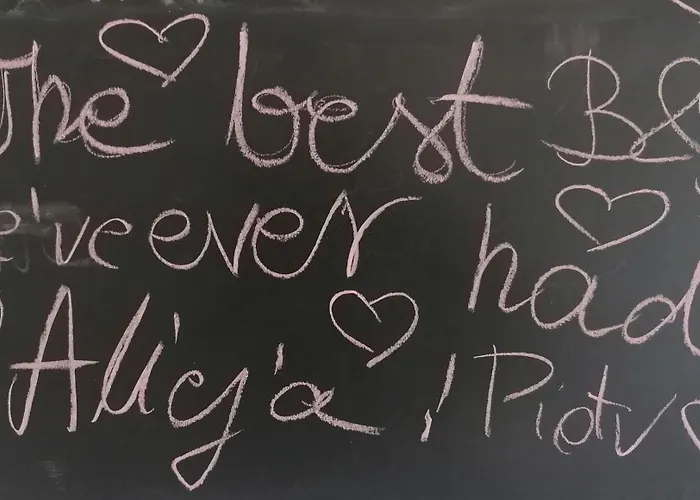 The best B&
e've ever had
Alicja i Piotr